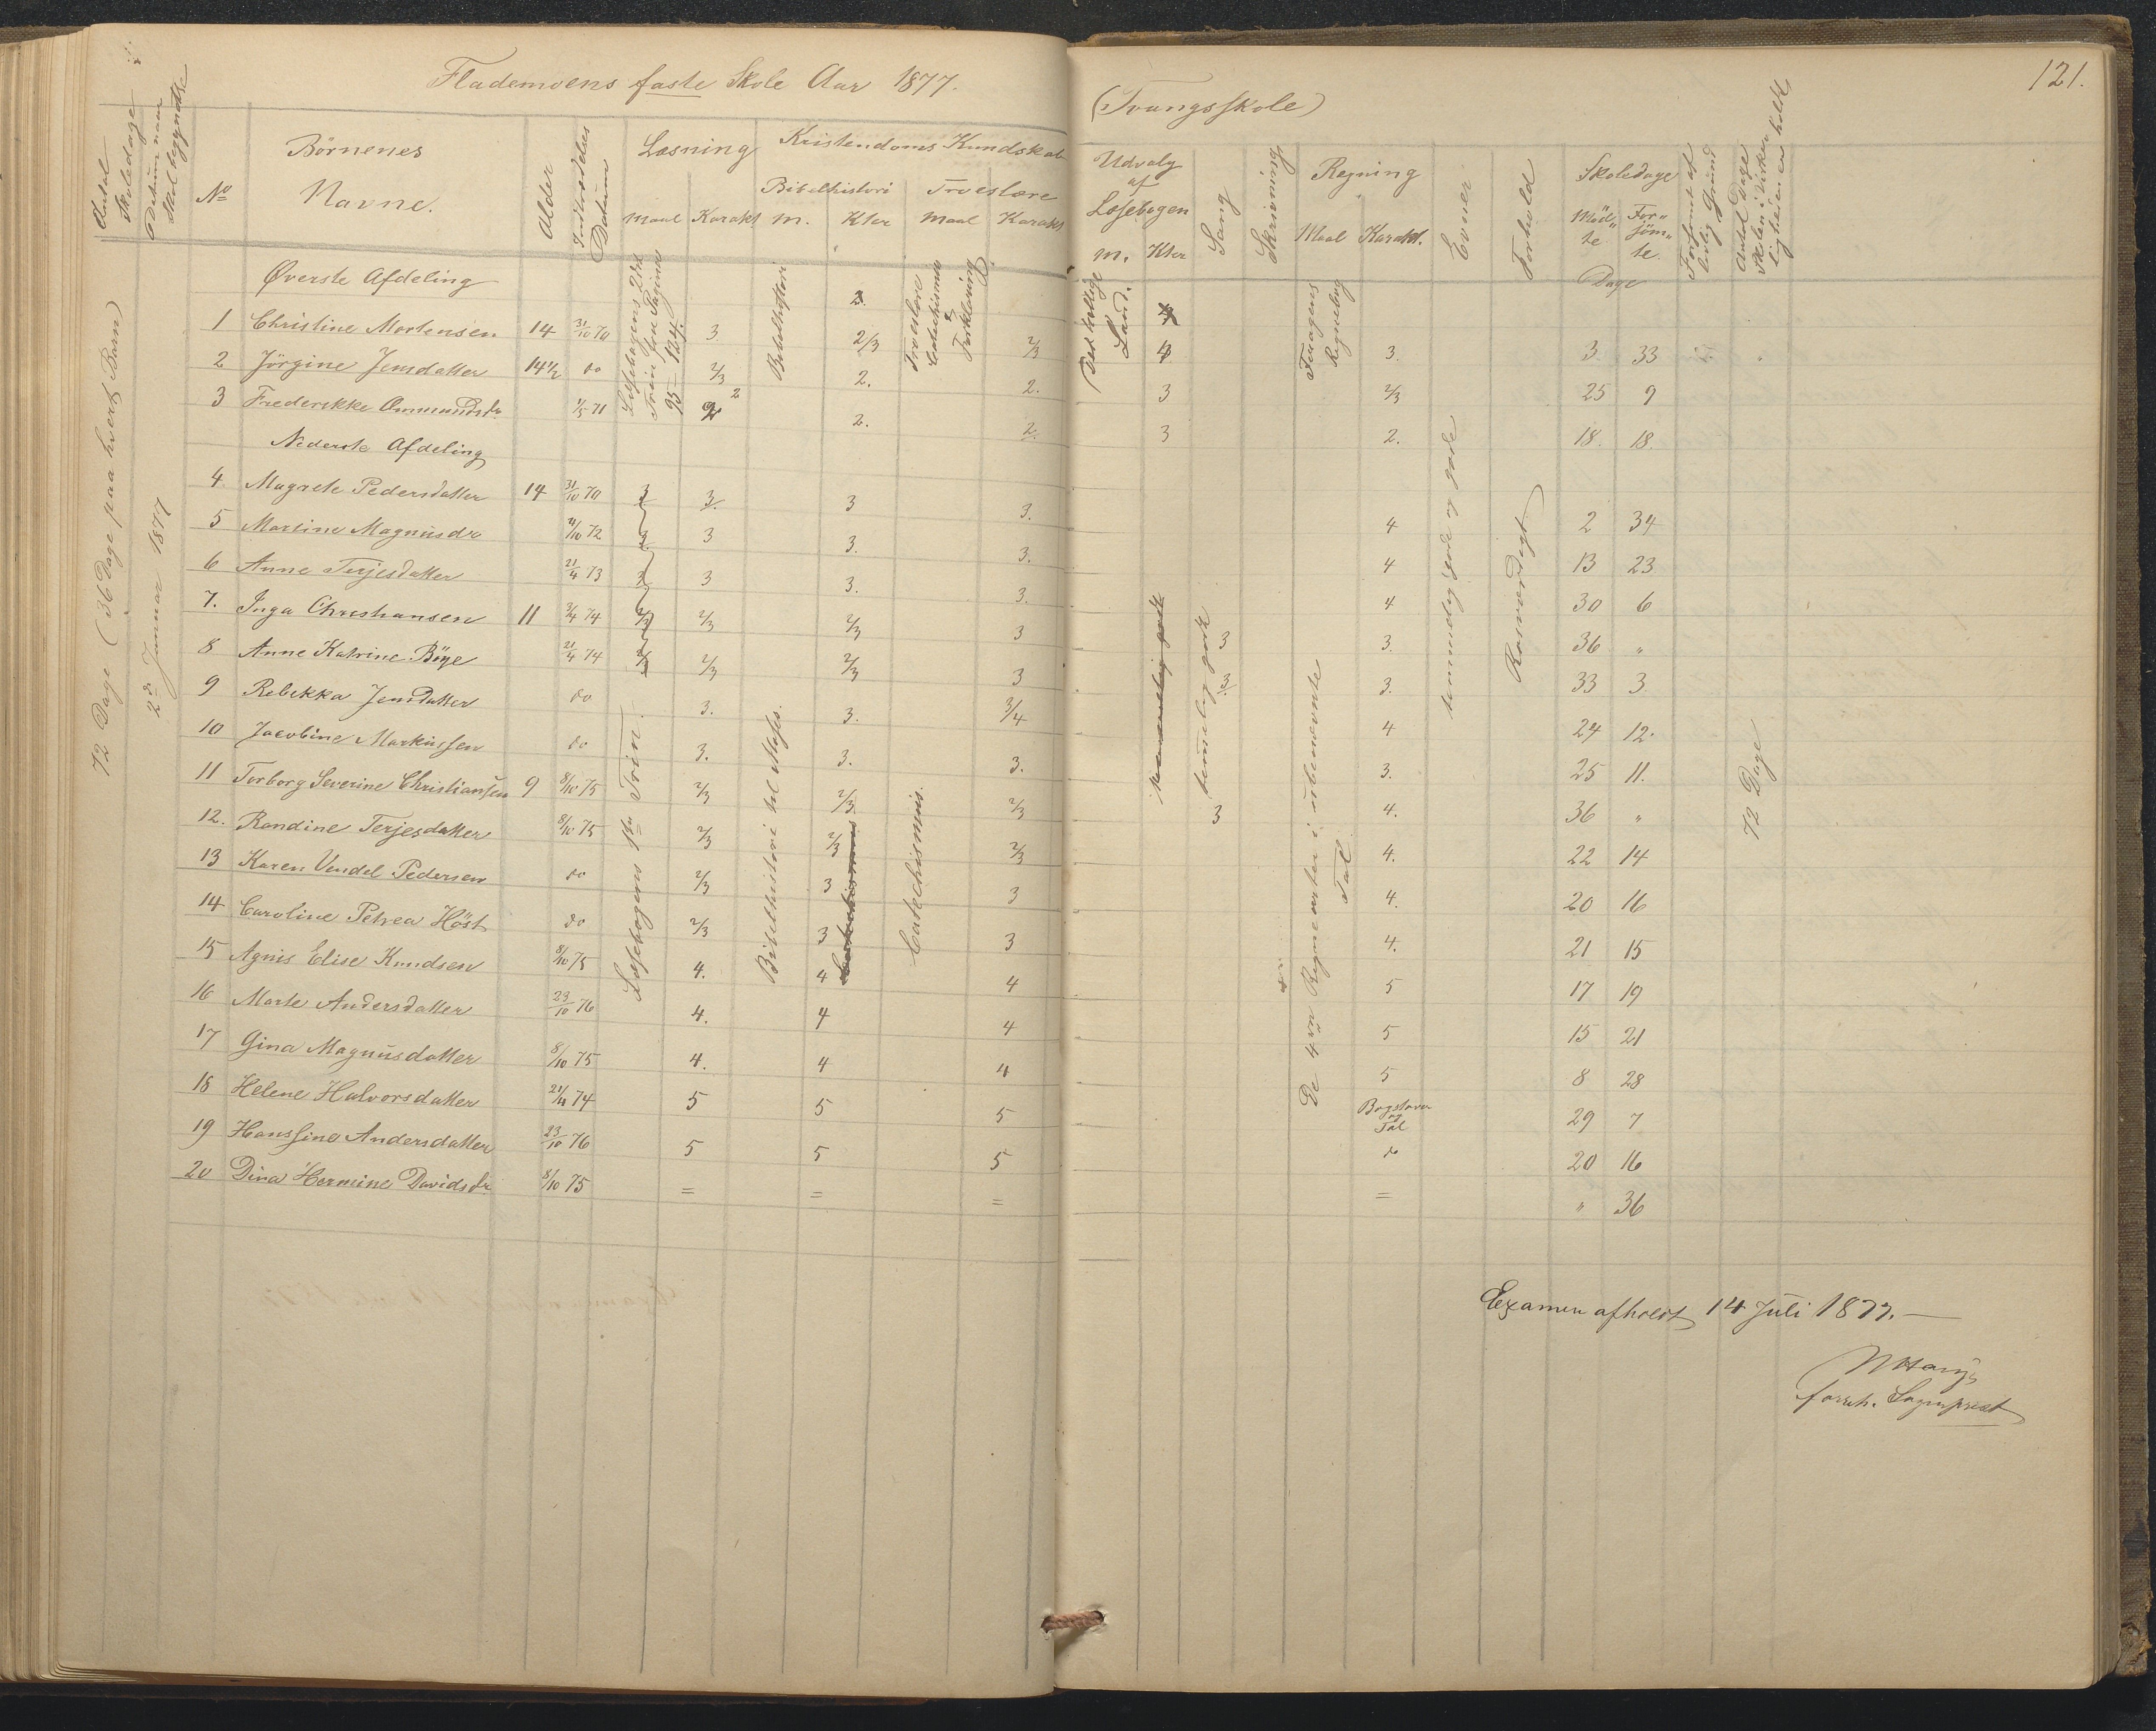 Flademoens faste Skole Aar 1877.
(Tvangsskole)
121.
Antal Skoledage
Datum naar Skol begyndte
No
Børnenes Navne.
Alder
Indtrædelses Datum
Læsning
Maal Karakt
Kristendoms Kundskab
Bibelhistori
M. Kter
Troeslære
Maal Karakt
Udvalg af Læsebogen
M. Kter
Sang
Skrivning
Regning
Maal Karakt.
Evner
Forhold
Skoledage
Mød„te For„söm„te
Dage
Forsømt af lovlig Grund
Antal Dage Skolen i Virkeligheden er holdt
72 Dage (36 Dage paa hvert Barn)
2den Januar 1877
Øverste Afdeling
Læsebogens 2det Trin fra Pagina 95–124.
Bibelhistori
Troeslære Catechismus & Forklaring
Det hellige Land.
Regnebog
3.
1 Christine Mortensen 14 31/10 70 3 2/3 2/3 4 3. 3. 33
2 Jörgine Jensdatter 14 1/2 do 2/3 2. 2. 3 2/3 25 9
3 Frederikke Ommundsdr 1/5 71 2 2. 2. 3 2. 18. 18.
Nederste Afdeling
4. Magrete Pedersdatter 14 31/10 70 3 3. 3 3. 4 2 34
5 Martine Magnusdr 11/10 72 3 3. 3. 4 13 23
6 Anne Terjesdatter 21/4 73 3 3 3. 3. 4 30 6
7. Inga Christiansen 11 3/4 74 2/3 2/3 2/3 3 3 3. 36 „
8 Anne Katrine Böye 21/4 74 2/3 2/3 2/3 3 3. 3. 33 3
9 Rebekka Jensdatter do 3. 3. 3/4 4 24 12.
10 Jacobine Markussen do 3. 3. 3. 3. 25 11.
11 Torborg Severine Christiansen 9 8/10 75 2/3 2/3 2/3 3 4. 36 „
12. Randine Terjesdatter 8/10 75 2/3 2/3 2/3 4. 22 14
13 Karen Vendel Pedersen do 2/3 3 3 4. 20 16
14 Caroline Petrea Höst do 2/3 3 3 4. 21 15
15 Agnis Elise Knudsen 8/10 75 4. 4 4 5 17 19
16 Marte Andersdatter 23/10 76 4. 4 4 5 15 21
17 Gina Magnusdatter 8/10 75 4. 4 4 5 8 28
18 Helene Halvorsdatter 21/4 74 5 5 5 Bogstaver og Tal 29 7
19 Hanssine Andersdatter 23/10 76 5 5 5 do 20 16
20 Dina Hermine Davidsdr 8/10 75 = = = = „ 36
Læsebogens 1ste Trin.
Bibelhistori til Moses.
Catechismus.
temmelig godt
De 4re Regnearter i ubenævnte Tal
temmelig gode og gode
Rosværdigt.
72 Dage
Examen afholdt 14 Juli 1877.—
Sogneprest